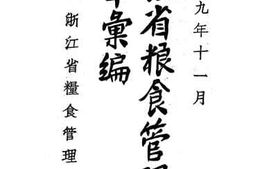 九年十一月
省粮食管
彙编
浙江省糧食管理